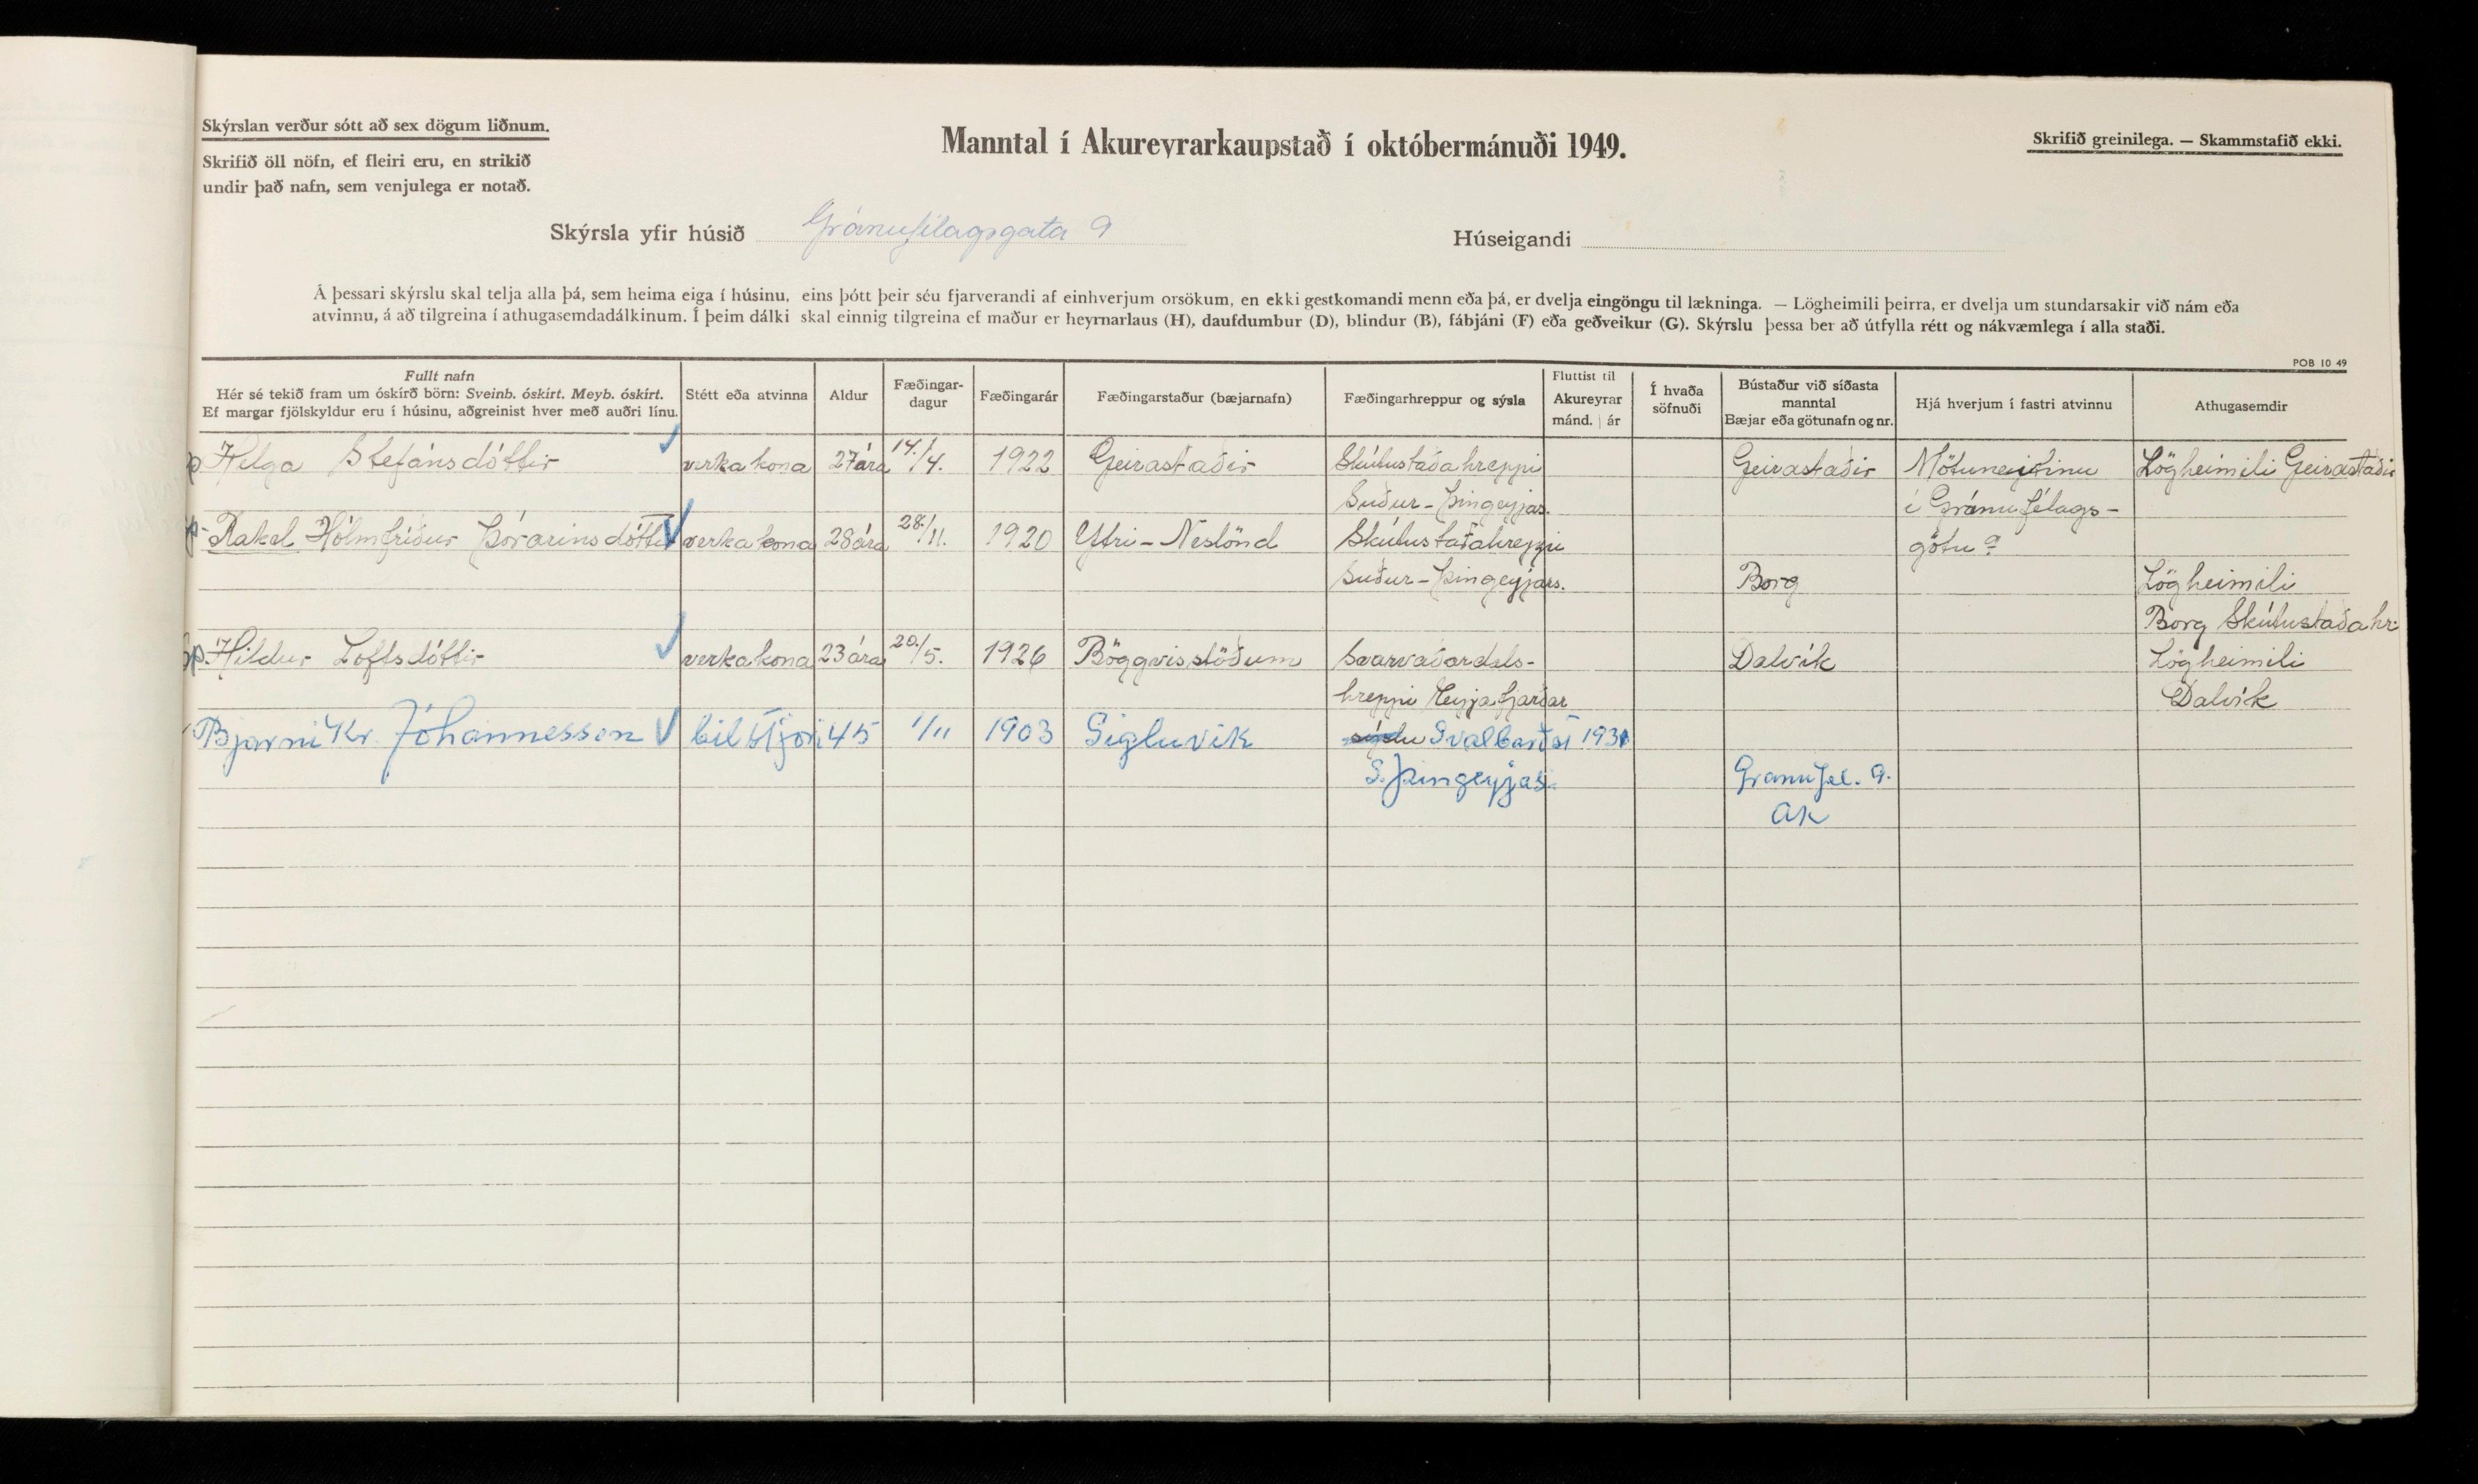 Skýrslan verður sótt að sex dögum liðnum.
Skrifið öll nöfn, ef fleiri eru, en strikið
undir það nafn, sem venjulega er notað.
Manntal í Akureyrarkaupstað í októbermánuði 1949.
Skrifið greinilega. — Skammstafið ekki.
Skýrsla yfir húsið Gránufélagsgata 9 Húseigandi
Á þessari skýrslu skal telja alla þá, sem heima eiga í húsinu, eins þótt þeir séu fjarverandi af einhverjum orsökum, en ekki gestkomandi menn eða þá, er dvelja eingöngu til lækninga. — Lögheimili þeirra, er dvelja um stundarsakir við nám eða
atvinnu, á að tilgreina í athugasemdadálkinum. Í þeim dálki skal einnig tilgreina ef maður er heyrnarlaus (H), daufdumbur (D), blindur (B), fábjáni (F) eða geðveikur (G). Skýrslu þessa ber að útfylla rétt og nákvæmlega í alla staði.
POB 10 49
Fullt nafn
Hér sé tekið fram um óskírð börn: Sveinb. óskírt. Meyb. óskírt.
Ef margar fjölskyldur eru í húsinu, aðgreinist hver með auðri línu.
Stétt eða atvinna
Aldur
Fæðingar-
dagur
Fæðingarár
Fæðingarstaður (bæjarnafn)
Fæðingarhreppur og sýsla
Fluttist til
Akureyrar
mánd. | ár
Í hvaða
söfnuði
Bústaður við síðasta
manntal
Bæjar eða götunafn og nr.
Hjá hverjum í fastri atvinnu
Athugasemdir
Helga Stefánsdóttir verkakona 27 ára 14./4. 1922 Geirastaðir Skútustaðahreppi Geirastaðir Mötuneytinu Lögheimili Geirastaðir
Suður-Þingeyjas. í Gránufélags-
Rakel Hólmfríður Þórarinsdóttir verkakona 28 ára 28./11. 1920 Ytri-Neslönd Skútustaðahreppi götu 9
Suður-Þingeyjars. Borg Lögheimili
Borg Skútustaðahr.
Hildur Loftsdóttir verkakona 23 ára 20./5. 1926 Böggvisstöðum Svarvaðardals- Dalvík Lögheimili
hreppi Eyjafjarðar Dalvík
Bjarni Kr. Jóhannesson bílstjóri 45 1/11 1903 Sigluvík sýslu Svalbarðst 1931
S. Þingeyjas. Granufel. 9.
Ak